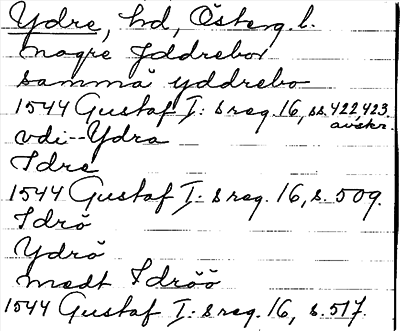 Ydre, hd, Österg. l.
magre Jddrebor
samma yddrebo
1544 Gustaf I:s reg. 16, ss. 422, 423.
avskr.
vdi--Ydra
Idre
1544 Gustaf I:s reg. 16, s. 509.
Idrö
Ydrö
medt Idröö
1544 Gustaf I:s reg. 16, s. 517.